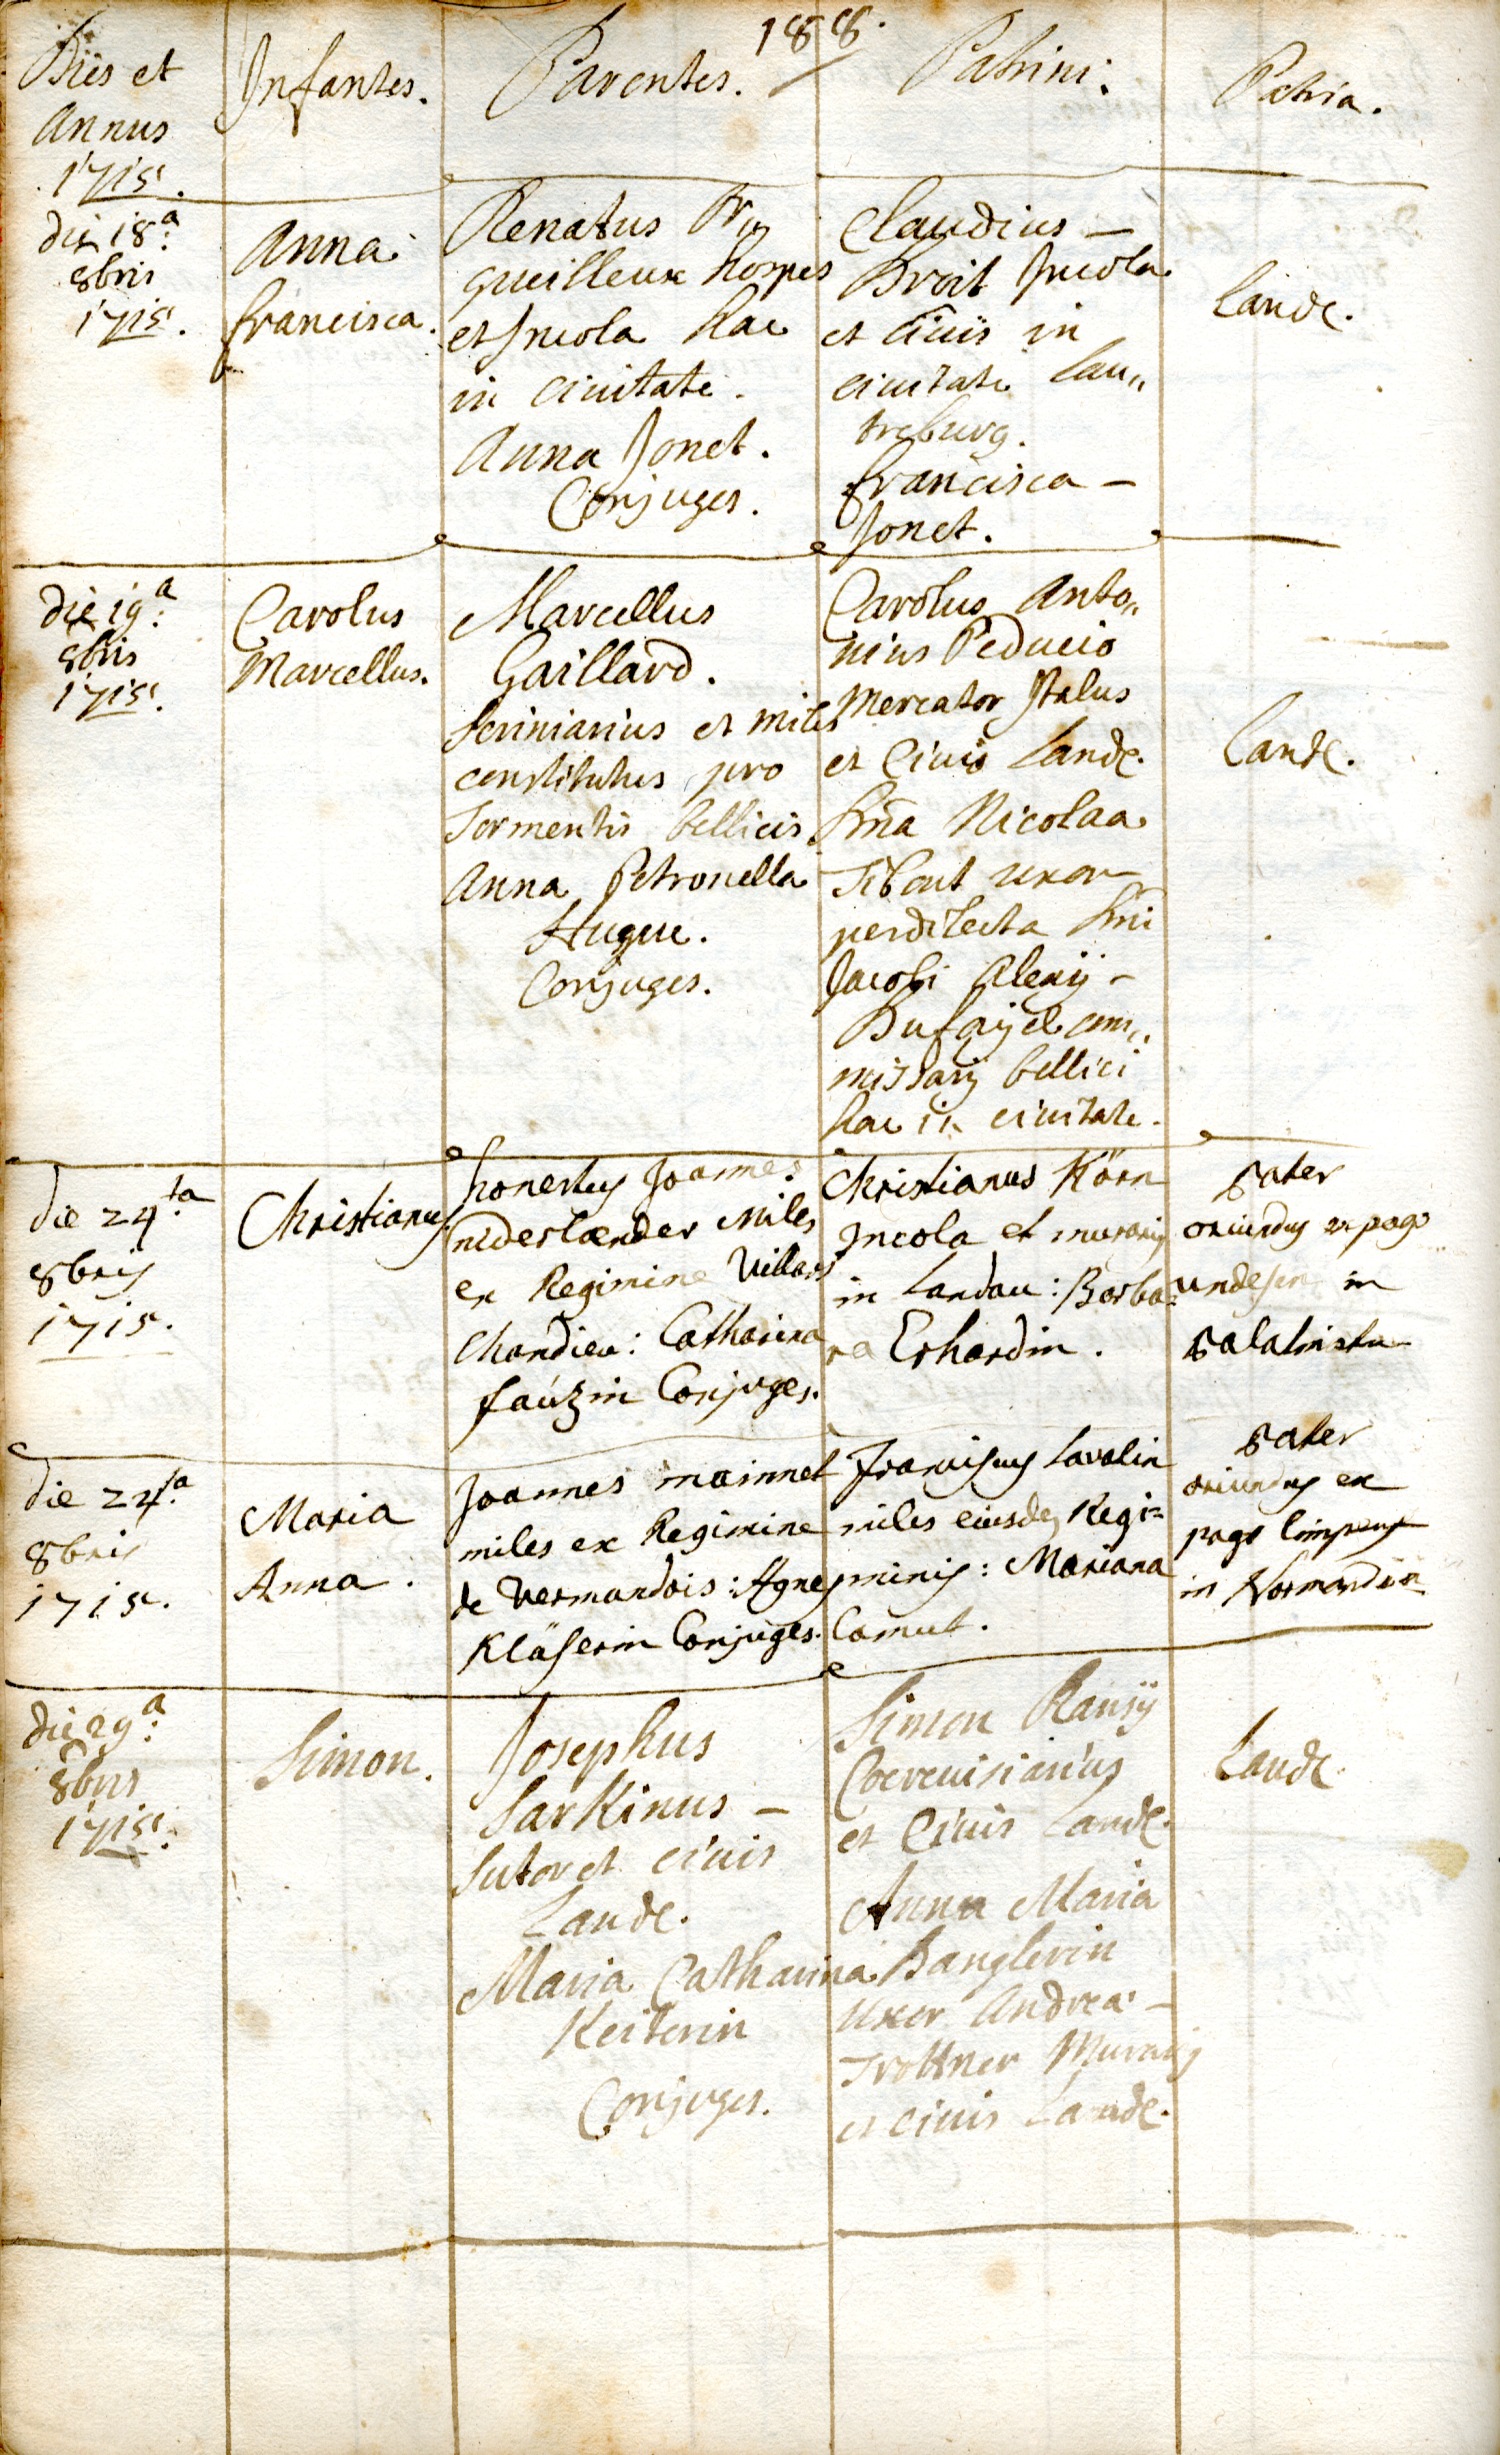 188.
Dies et
Annus
1715.
Infantes.
Parentes.
Patrini.
Patria.
die 18.a
8bris
1715.
Anna
francisca.
Renatus Tri,,
gueilleux hospes
et Incola hac
in civitate.
Anna Jonet.
Conjuges.
Claudius –
Droit Incola
et Civis in
civitate Lau,,
treburg.
francisca –
Jonet.
Landę.
die 19.a
8bris
1715.
Carolus
Marcellus.
Marcellus
Gaillard.
Scriniarius et miles
constitutus pro
Tormentis bellicis.
Anna Petronella
Hugue.
Conjuges.
Carolus Anto,,
nius Peducio
Mercator Italus
et Civis Landę.
Dna Nicolaa
Tibout uxor
perdilecta Dni
Jacobi Alexij –
Dufayel com,,
missarij bellici
hac in civitate.
Landę.
die 24.ta
8bris
1715.
Christianus
honestus Joannes
niderlænder Miles
ex Regimine Villars
Chandieu: Catharina
fauzin Conjuges.
Christianus Körn
Incola et murarius
in Landau: Barba=
ra Erhardin.
Pater
oriundus ex pago
in
Palatinatu
die 24.ta
8bris
1715.
Maria
Anna.
Joannes mainnet
miles ex Regimine
de Vermandois: Agnes
Kläserin Conjuges.
Franciscus Lavalin
miles eiusdem Regi=
minis: Mariana
Camut.
Pater
oriundus ex
pago
in Normandia
die 29.a
8bris
1715.
Simon.
Josephus
Sarkinus –
Sutor et civis
Landę.
Maria Catharina
Keiterin
Conjuges.
Simon Ransÿ
Coerevisiarius
et Civis Landę.
Anna Maria
Banglerin
Uxor Andreæ –
Trottner Murarij
et civis Landę.
Landę